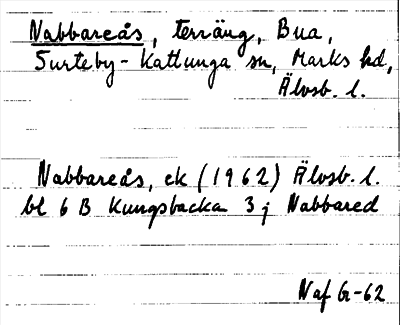 Nabbareås, terräng, Bua,
Surteby-Kattunga sn, Marks hd,
Älvsb. l.
Nabbareås, ek (1962) Älvsb. l.
bl 6 B Kungsbacka 3 j Nabbared
Naf G-62